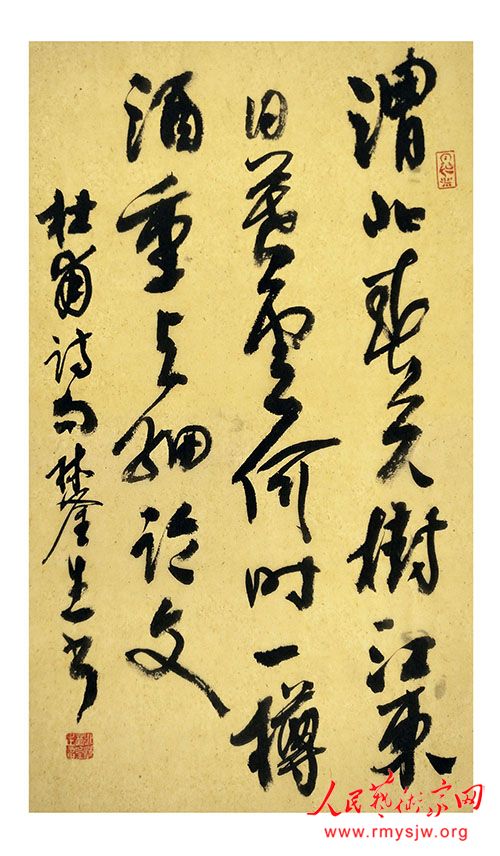 渭北春天樹江東
日暮雲何时一樽
酒重与细论文
杜甫诗句 生书
人民藝術家网
www.rmysjw.org